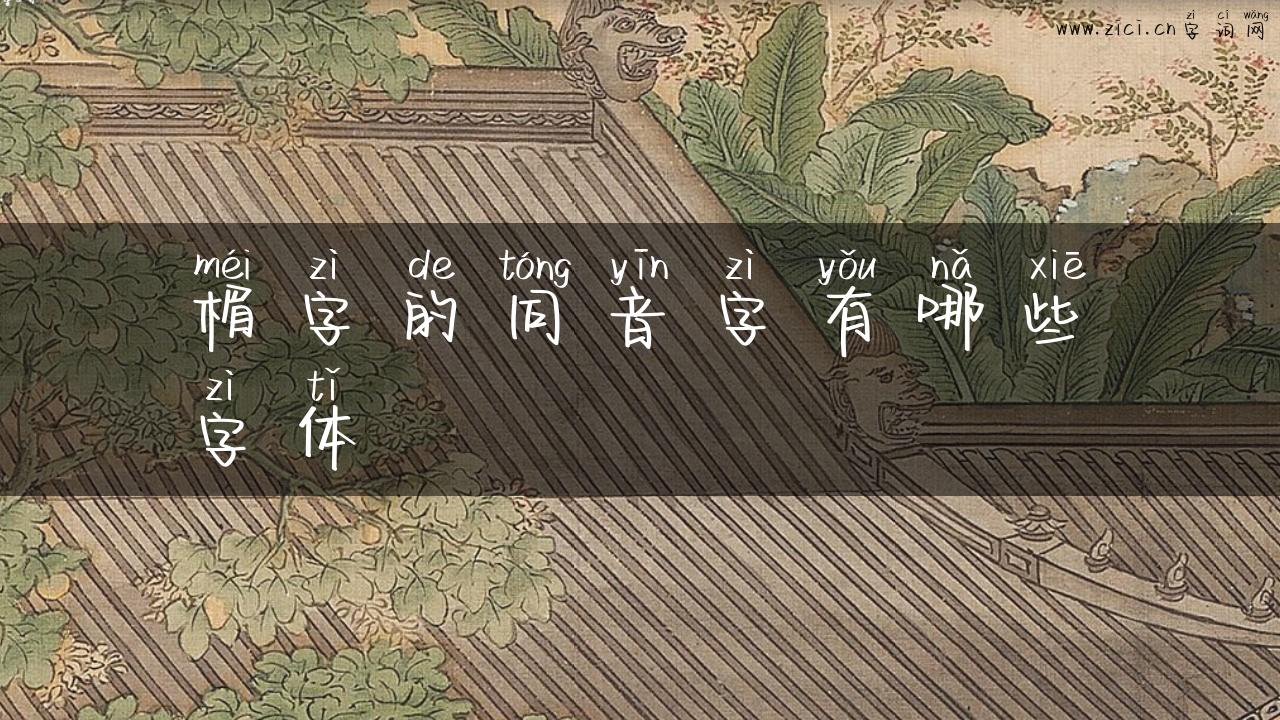 zì cí wǎng
www.zici.cn 字词网
méi zì de tóng yīn zì yǒu nǎ xiē
楣字的同音字有哪些
zì tǐ
字体